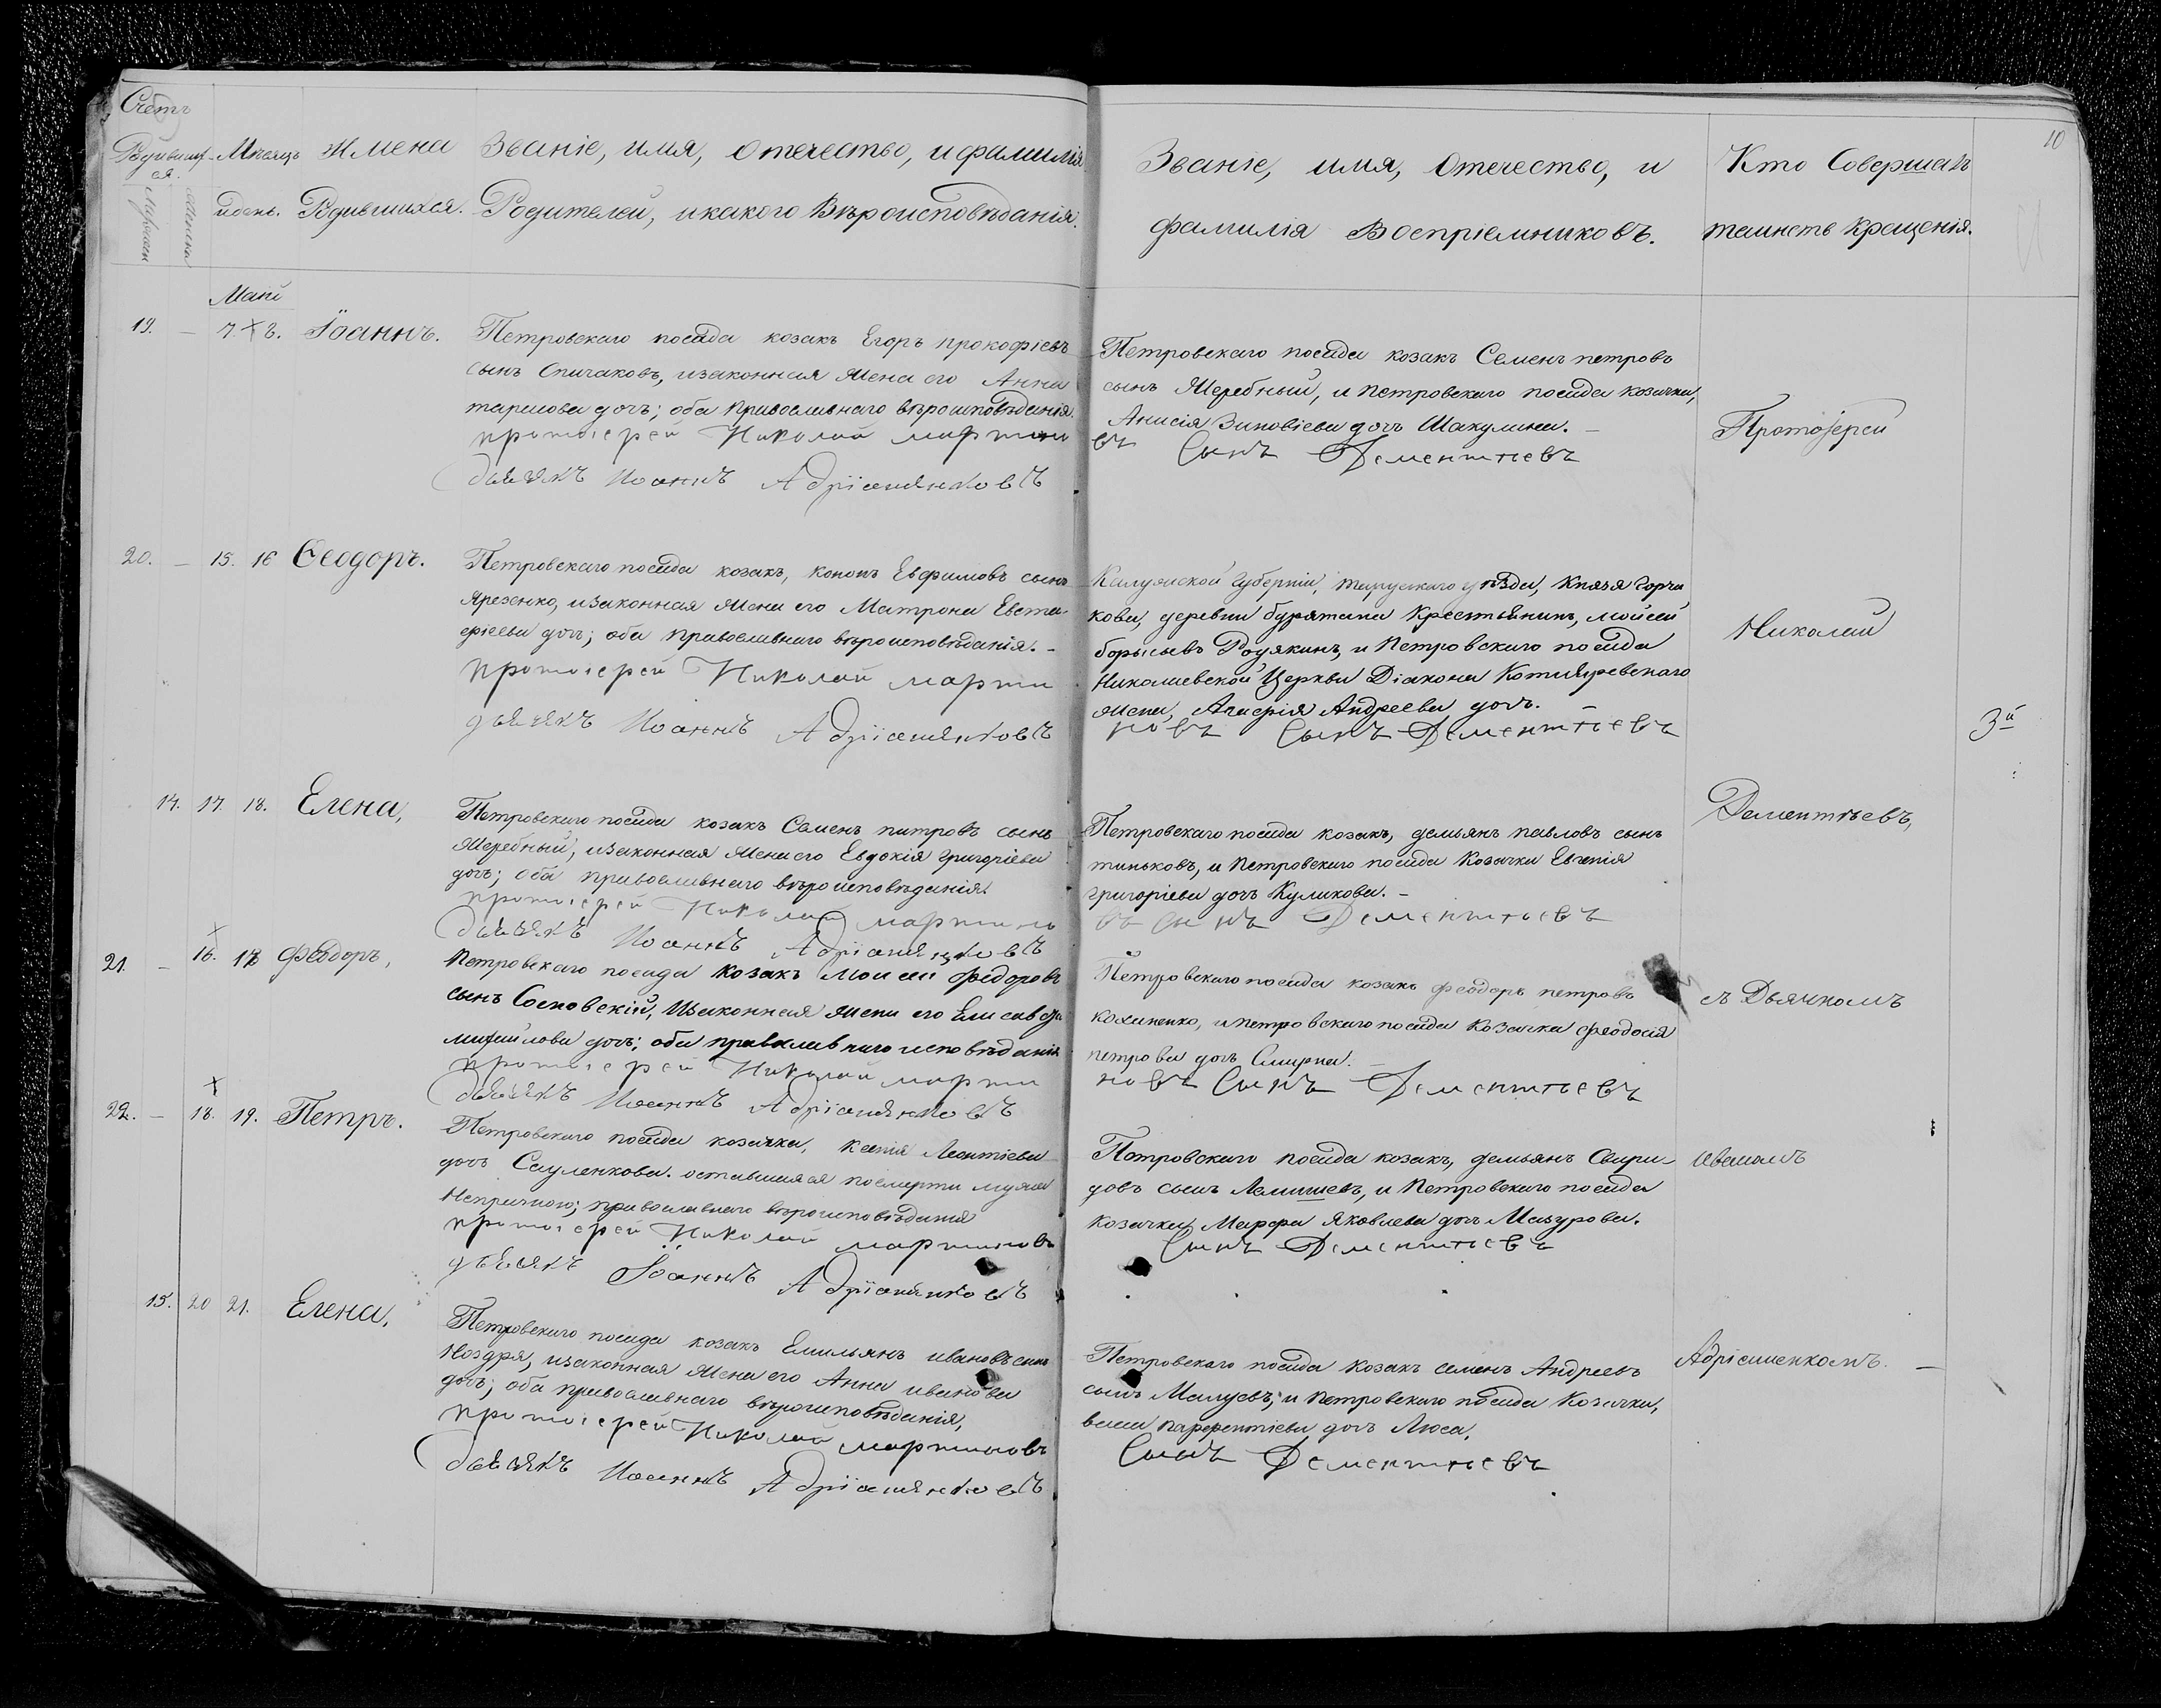 Счетъ
Родившихся.
Мѣсяцъ
и день.
Имена
Родившихся.
Званіе, имя, отечество, и фамилія
Родителей, и какого Вѣроисповѣданія.
Званіе, имя, отечество, и
фамилія Воспріемниковъ.
Кто Совершалъ
таинств Крещенія.
10
Май
19. — 7. 8. Іоаннъ.
Петровскаго посада козакъ Егоръ прокофіевъ
сынъ Спичаковъ, изаконная жена его Анна
дочь; оба православнаго вѣроисповѣданія.
протоіерей Николай мартино
въ Сынъ Дементіевъ
дьячкъ Иоаннъ Адріяшенковъ
Петровскаго посада козакъ Семенъ петровъ
сынъ Жеребный, и петровскаго посада козачка,
Анисія Зиновіева дочь Шакулина. —
Протоіерей
20. — 15. 16 Ѳеодоръ.
Петровскаго посада козакъ, кононъ Евфимовъ сынъ
Ярезенко, изаконная жена его Матрона Евста-
фіева дочь; оба православнаго вѣроисповѣданія. —
протоіерей Николай марти
новъ Сынъ Дементіевъ
дьячкъ Иоаннъ Адріяшенковъ
Калужской губерніи, тарускаго уѣзда, Князя Горча
кова, деревни бурятина Крестьянинъ, мойсей
борысывъ Родякинъ, и Петровскаго посада
Николаевской Церкви Діакона Котляревскаго
жена, Андреева дочь.
Николай
3й
14. 17. 18. Елена,
Петровскаго посада козакъ Семенъ питровъ сынъ
Жеребный, изаконная жена его Евдокія григоріева
дочь; оба православнаго вѣроисповѣданія.
протоіерей Николай мартино
въ сынъ Дементіевъ
дьячкъ Иоаннъ Адріяшенковъ
Петровскаго посада козакъ, демьянъ павловъ сынъ
тиньковъ, и Петровскаго посада Козачка Евгенія
григоріева дочь Куликова. —
Дементіевъ,
21. — 16. 17 Феодоръ,
Петровскаго посада Козакъ Моисей федоровъ
сынъ Сосновскій, Изаконная жена его Елисавефа
михайлова дочь; оба православнаго исповѣданія
протоіерей Николай марти
новъ Сынъ Дементіевъ
дьячкъ Иоаннъ Адріяшенковъ
Петровскаго посада козакъ феодоръ петровъ
кохиненко, и петровскаго посада Козачка феодосія
петрова дочь Смирна. —
съ Дьячкомъ
22. — 18. 19. Петръ.
Петровскаго посада козачка, Ксенія Леонтіева
дочь Сауленкова. оставшаяся посмерти мужа
православнаго вѣроисповѣданія
протоіерей Николай мартиновъ
Сынъ Дементіевъ
дьячкъ Іоаннъ Адріяшенковъ
Петровскаго посада козакъ, демьянъ Свири-
довъ сынъ Лемишевъ, и Петровскаго посада
козачка Марфа Яковлева дочь Мазурова.
Иваномъ
15. 20 21. Елена,
Петровскаго посада козакъ Емильянъ ивановъ сынъ
Ноздря, изаконная жена его Анна иванова
дочь; оба православнаго вѣроисповѣданія,
протоіерей Николай мартиновъ
Сынъ Дементіевъ
дьячкъ Иоаннъ Адріяшенковъ
Петровскаго посада Козакъ семенъ Андреевъ
сынъ Малуевъ; и Петровскаго посада Козачка,
васса парфентіева дочь Люса,
Адріяшенкомъ. —